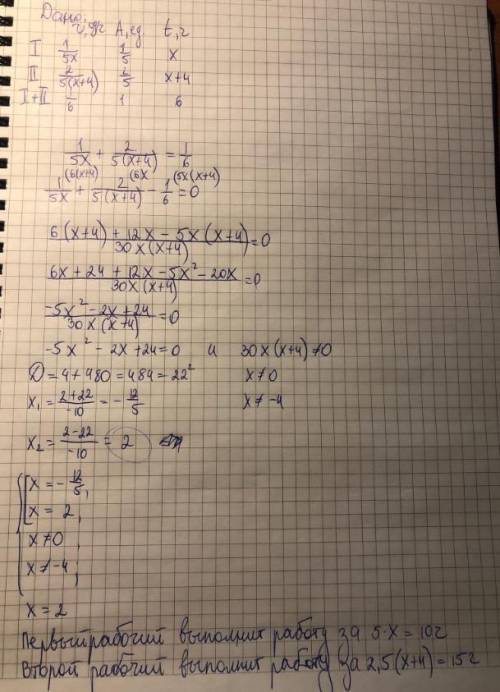 Дано:
v, ед/г A, ед. t, г
I 1/5x 1/5 x
II 2/5(x+4) 2/5 x+4
I+II 1/6 1 6
1/5x + 2/5(x+4) = 1/6
1/5x (6(x+4) + 2/5(x+4) (6x - 1/6 (5x(x+4) = 0
6(x+4)+12x-5x(x+4)/30x(x+4) = 0
6x+24+12x-5x²-20x/30x(x+4) = 0
-5x²-2x+24/30x(x+4) = 0
-5x²-2x+24=0 и 30x(x+4)≠0
D=4+480=484=22² x≠0
x₁ = 2+22/-10 = -12/5 x≠-4
x₂ = 2-22/-10 = 2
x = -12/5,
x = 2,
x≠0,
x≠-4;
x = 2
Первый рабочий выполнит работу за 5·x = 10г
Второй рабочий выполнит работу за 2,5(x+4) = 15г